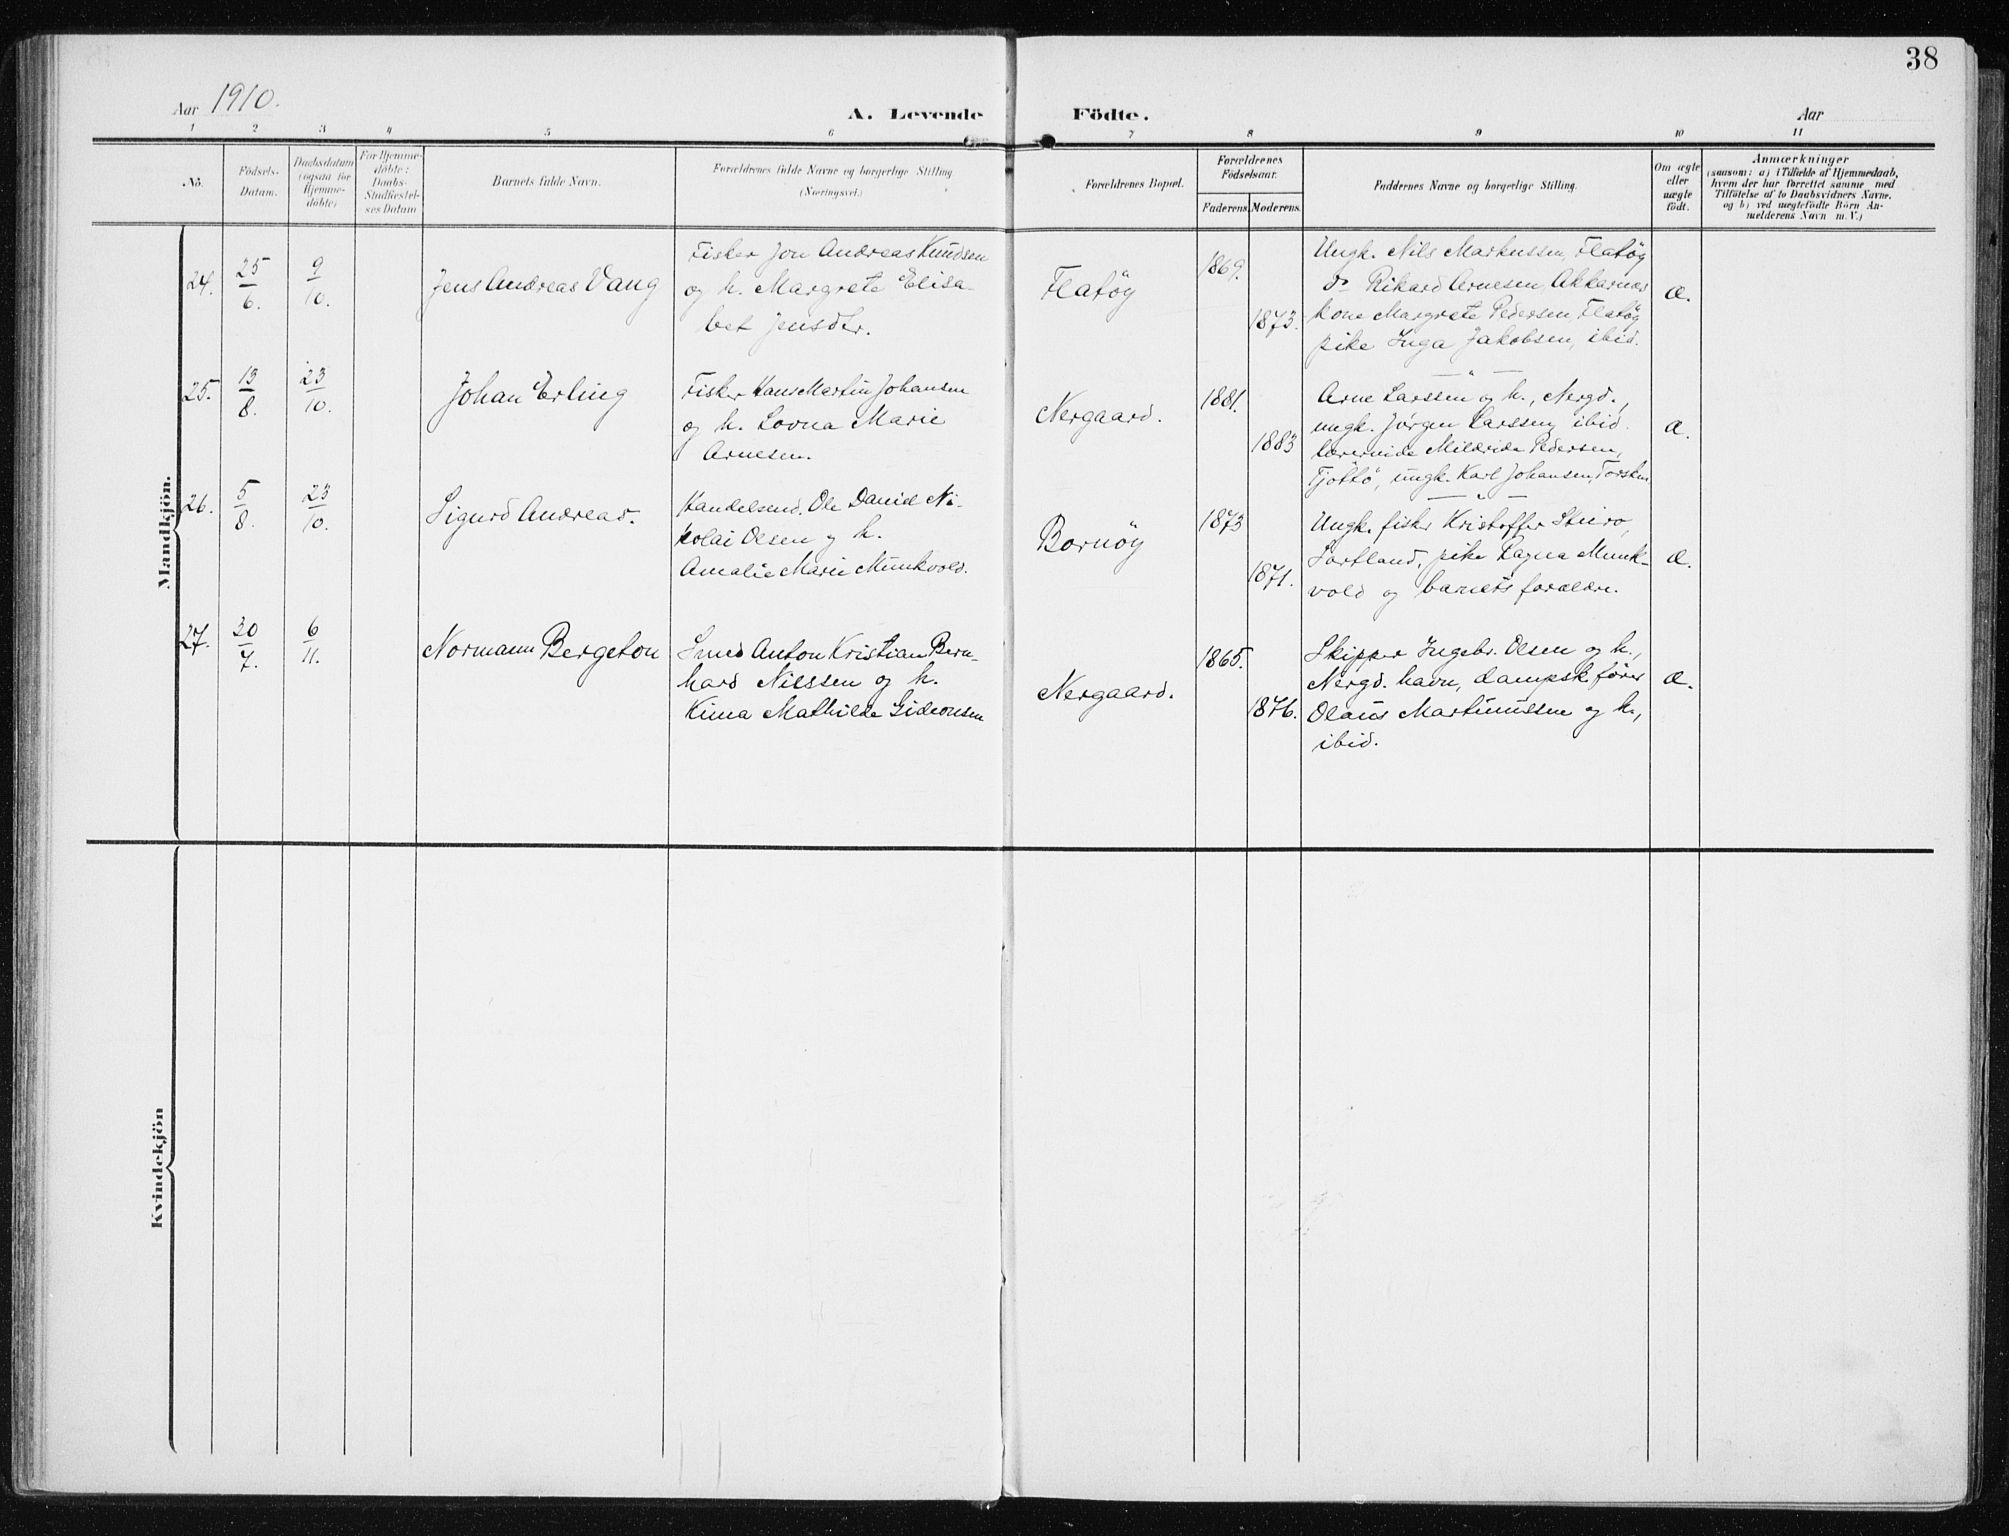 38
Aar 1910.
A. Levende Födte.
Aar
1 2 3 4 5 6 7 8 9 10 11
No.
Födsels-
Datum.
Daabsdatum
(ogsaa for
Hjemme-
döbte)
For Hjemme-
döbte:
Daabs-
Stadfæstel-
ses Datum
Barnets fulde Navn.
Forældrenes fulde Navne og borgerlige Stilling
(Næringsvei.)
Forældrenes Bopæl.
Forældrenes
Födselsaar.
Faderens. Moderens.
Faddernes Navne og borgerlige Stilling.
Om ægte
eller
uægte
födt.
Anmærkninger
(saasom: a) i Tilfælde af Hjemmedaab,
hvem der har forrettet samme med
Tilföielse af to Daabsvidners Navne,
og b) ved uægtefödte Börn An-
melderens Navn m. V.)
Mandkjön.
24.
25/6.
9/10.
Jens Andreas Vang
Fisker Jon Andreas Knudsen
og h. Margrete Elisa-
bet Jensdtr.
Flatøy
1869.
1873.
Ungk. Nils Markussen, Flatøy
do Rikard Arnesen, Akkarnes
kone Margrete Pedersen, Flatøy
pike Inga Jakobsen, ibid.
æ.
25.
13/8.
23/10.
Johan Erling
Fisker Hans Martin Johansen
og h. Lovna Marie
Arnesen.
Nergaard.
1881.
1883
— " —
Arne Larssen og h., Nergd.,
ungk. Jørgen Larssen, ibid.
lærerinde Mildride Pedersen,
Tjøttø, ungk. Karl Johansen, Torsken
æ.
26.
5/8.
23/10.
Sigurd Andreas.
Handelsmd. Ole Daniel Ni-
kolai Olsen og h.
Amalie Marie Munkvold.
Bornøy
1873
1871.
— " —
Ungk. fisker Kristoffer Steiro,
Sortland, pike Ragna Munk-
vold og barnets forældre.
æ.
27.
30/7.
6/11.
Normann Bergeton
Smed Anton Kristian Bern-
hard Nilssen og h.
Kima Mathilde Gideonsen
Nergaard.
1865.
1876.
Skipper Ingebr. Olsen og h.,
Nergd. havn, dampsk.fører
Olaus Martinussen og h.,
ibid.
æ.
Kvindekjön